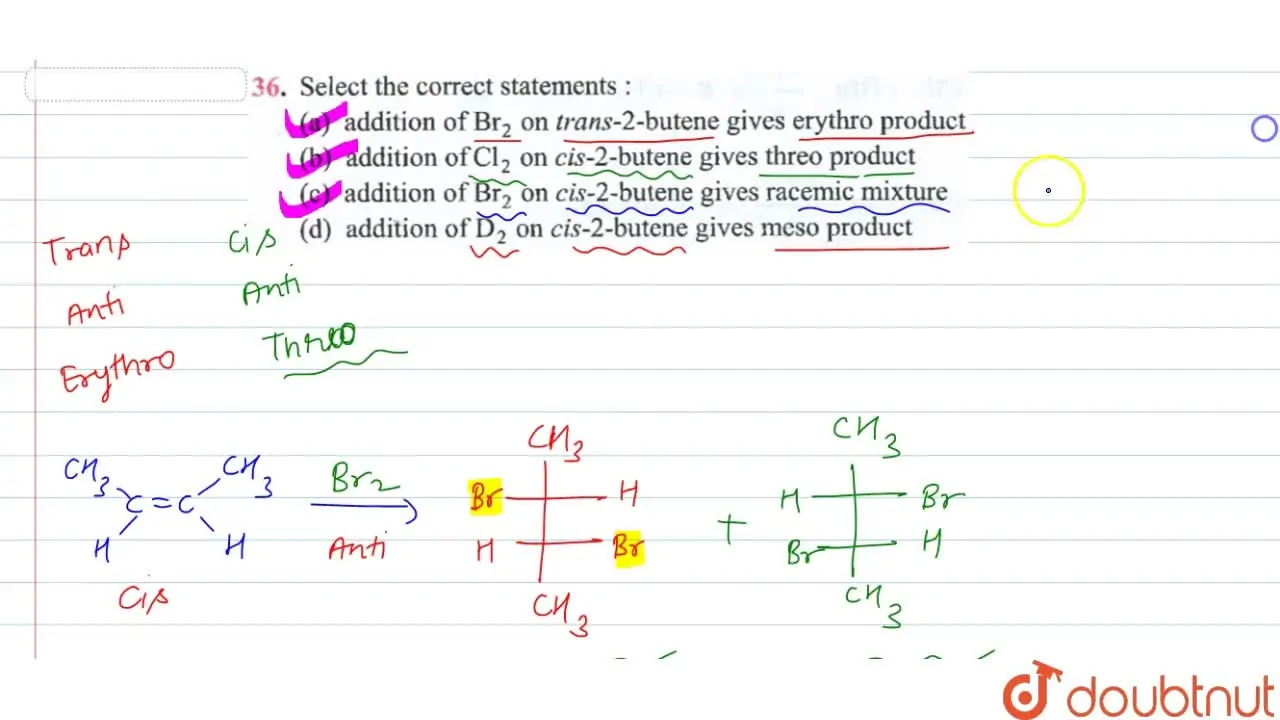 36. Select the correct statements :
(a) addition of Br₂ on trans-2-butene gives erythro product
(b) addition of Cl₂ on cis-2-butene gives threo product
(c) addition of Br₂ on cis-2-butene gives racemic mixture
(d) addition of D₂ on cis-2-butene gives meso product
Trans Cis
Anti Anti
Erythro Threo
CH₃ CH₃
CH₃ CH₃ Br₂ Br H H Br
C=C
H H Anti H Br + Br H
Cis CH₃ CH₃
doubtnut